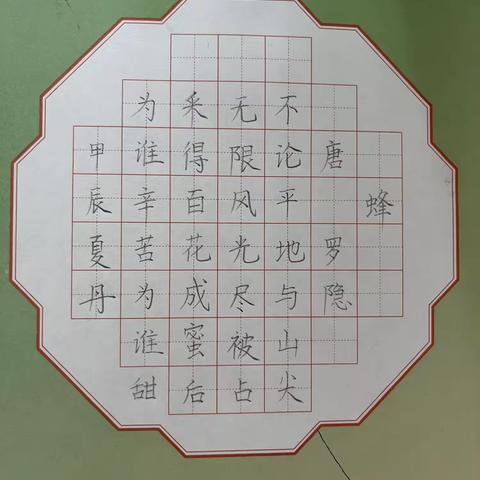 蜂
唐罗隐
不论平地与山尖
无限风光尽被占
采得百花成蜜后
为谁辛苦为谁甜
甲辰夏丹